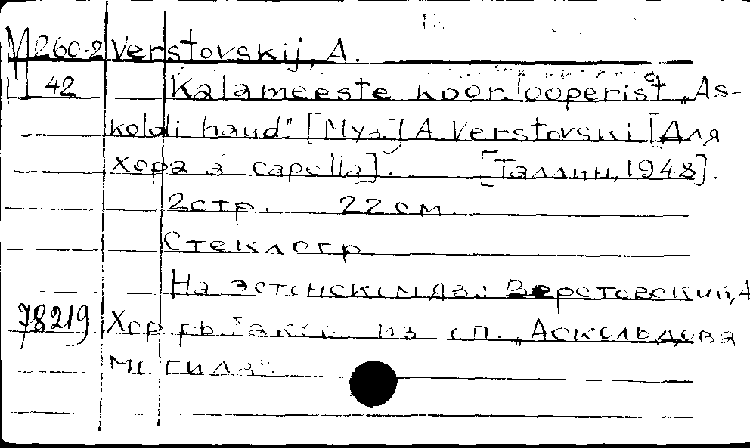 М 260-2 Verstovskij, A.
42 Kalameeste koor ooperist „As-
koldi haud". [Муз.] A. Verstovski [Для
хора a capella]. [Таллин, 1948].
2 стр. 22 см.
Стеклогр
На эстонском яз.: Верстовский, А
78219 Хор рыбаков из оп. „Аскольдова
могила".